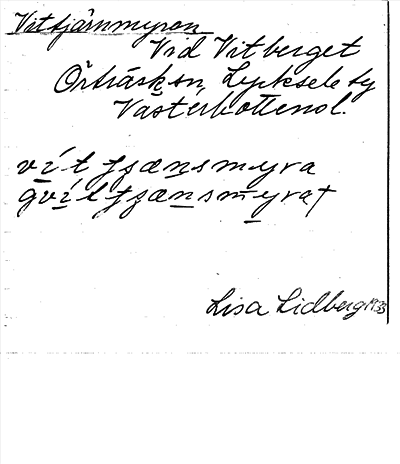 Vittjärnmyron
Vid Vitberget
Örträsk sn, Lycksele ty
Västerbottens l.
vít tjsænsmyra
gvít tjsænsmyrat
Lisa Lidberg 1935